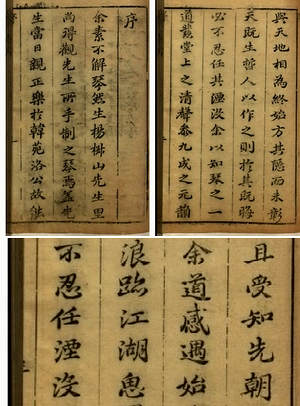 序
余素不解琴然生楊椒山先生里
尚得觀先生所手制之琴焉蓋先
生當日親正樂於韓苑洛公故能
與天地相為終始方其隱而未彰
天既生哲人以作之則於其既晦
必不忍任其湮沒余以知琴之一
道堂上之清聲九成之元韻
且受知先朝
余道感遇始
浪跡江湖思
不忍任湮沒